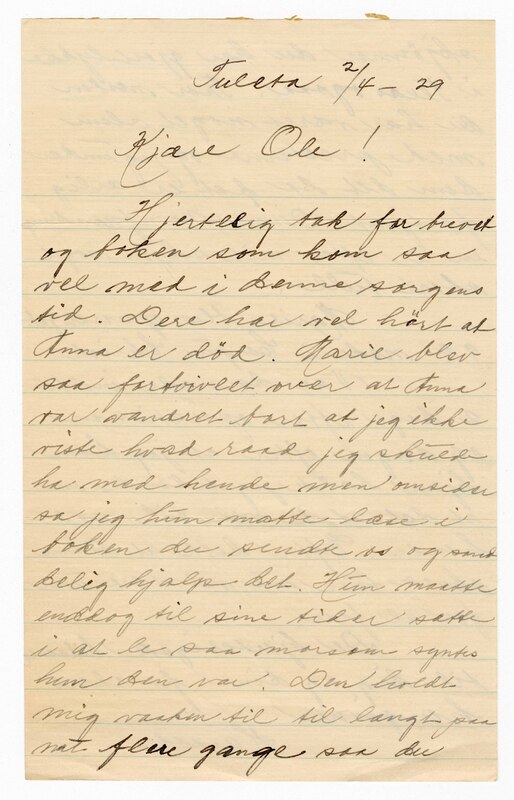 Tuleta 2/4 - 29
Kjære Ole!
Hjertelig tak for brevet
og boken som kom saa
vel med i denne sorgens
tid. Dere har vel hört at
Anna er död. Marie blev
saa fortvivlet over at Anna
var vandret bort at jeg ikke
viste hvad raad jeg skulde
ha med hende men omsider
sa jeg hun maatte læse i
boken du sendte os og sand
delig hjalp det. Hun maatte
enddog til sine tider sætte
i at le saa morsom syntes
hun den var. Den holdt
mig vaaken til til langt paa
nat flere gange saa du